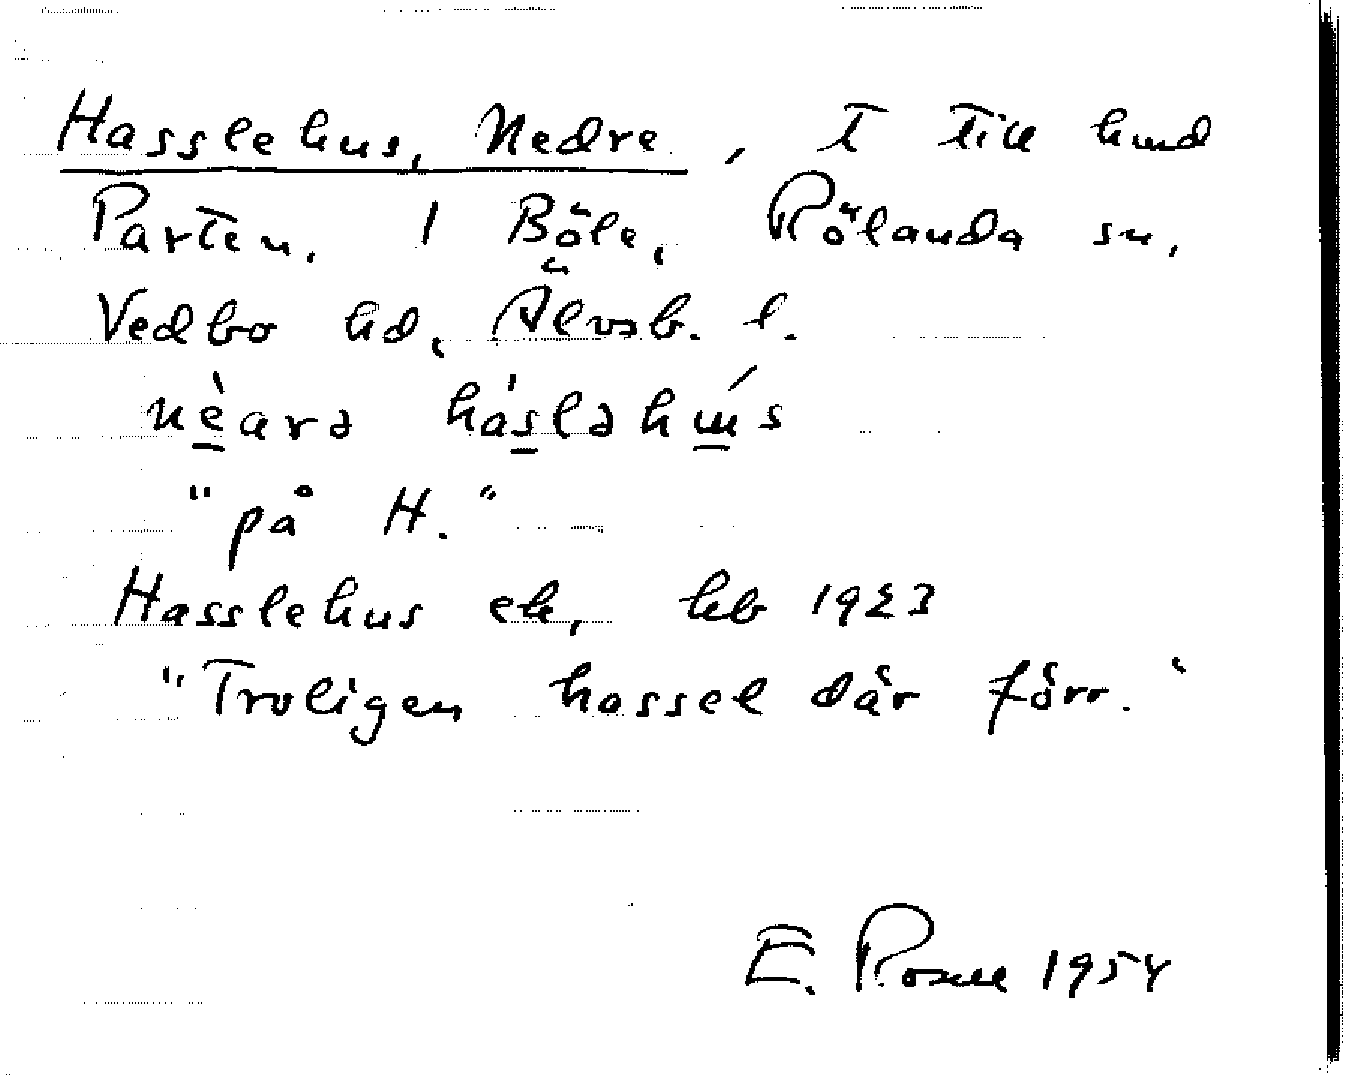 Hasslehus, Nedre, T till hmd
Parten. 1 Böle, Rölanda sn,
Vedbo hd, Älvsb. l.
nèarə hásləhús
"på H."
Hasslehus ek, hb 1923
"Troligen hassel där förr."
E. Rosell 1954